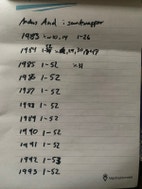 Anders And : samlemapper
1983 : 10, 19 1-26
1984 1-52
1985 1-52
1986 1-52
1987 1-52
1988 1-52
1989 1-52
1990 1-52
1991 1-52
1992 1-53
1993 1-52